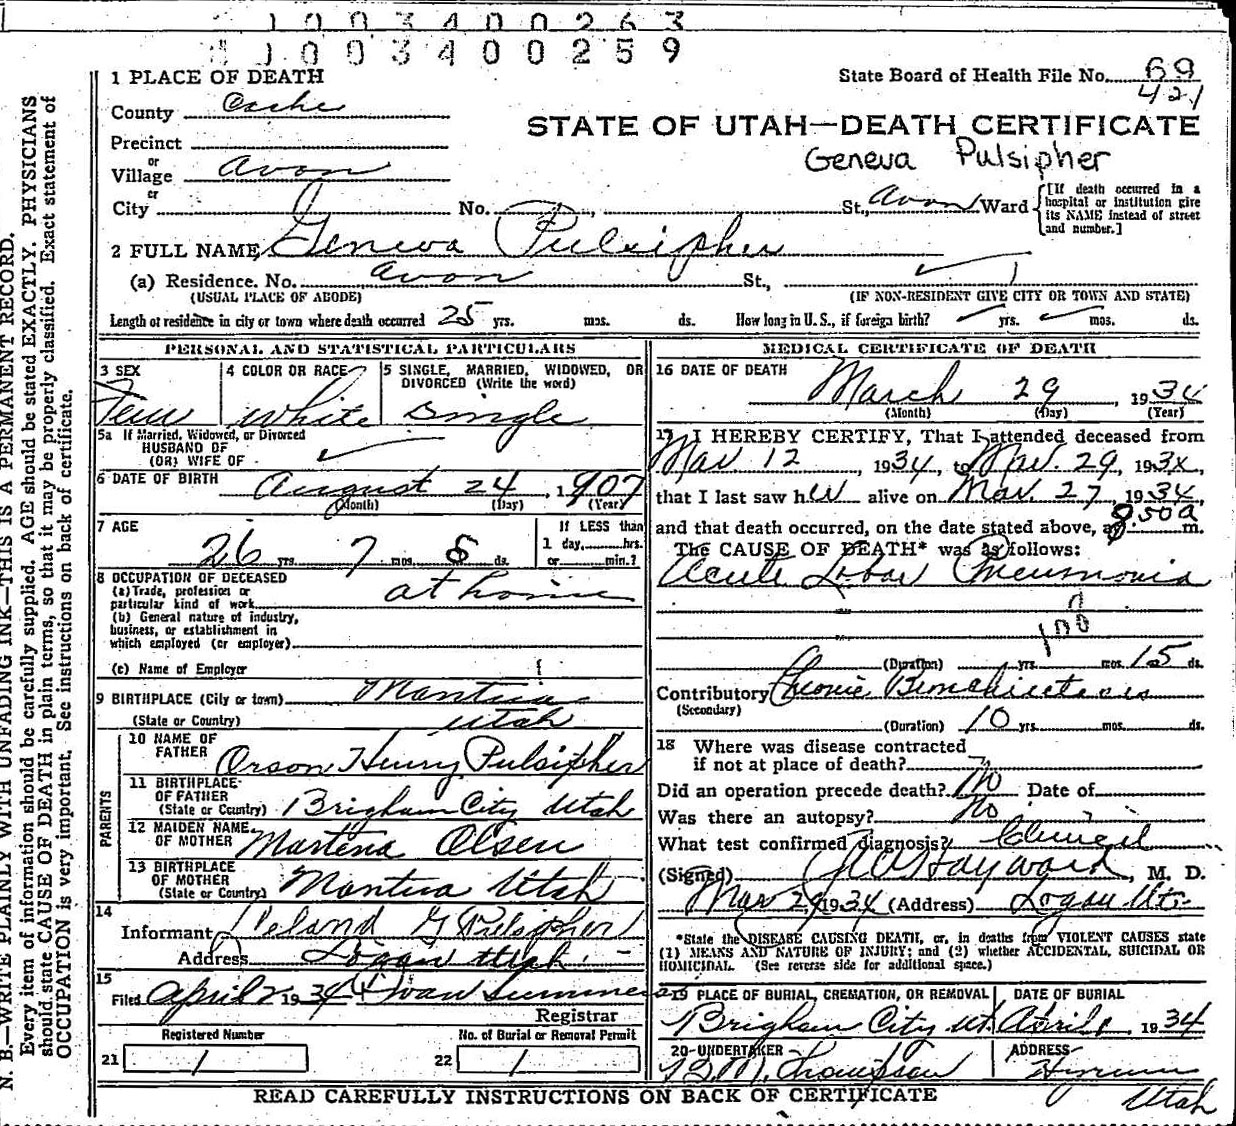 1 0 0 3 4 0 0 2 6 3
1 0 0 3 4 0 0 2 5 9
N. B.—WRITE PLAINLY WITH UNFADING INK—THIS IS A PERMANENT RECORD.
Every item of information should be carefully supplied. AGE should be stated EXACTLY. PHYSICIANS
should state CAUSE OF DEATH in plain terms, so that it may be properly classified. Exact statement of
OCCUPATION is very important. See instructions on back of certificate.
1 PLACE OF DEATH
State Board of Health File No. 69
421
County Cache
STATE OF UTAH—DEATH CERTIFICATE
Geneva Pulsipher
Precinct
or
Village Avon
or
City No. St., Avon Ward
[If death occurred in a
hospital or institution give
its NAME instead of street
and number.]
2 FULL NAME Geneva Pulsipher
(a) Residence. No. Avon St.,
(USUAL PLACE OF ABODE) (IF NON-RESIDENT GIVE CITY OR TOWN AND STATE)
Length of residence in city or town where death occurred 25 yrs. mos. ds. How long in U. S., if foreign birth? yrs. mos. ds.
PERSONAL AND STATISTICAL PARTICULARS
3 SEX 4 COLOR OR RACE 5 SINGLE, MARRIED, WIDOWED, OR
DIVORCED (Write the word)
Fem White Single
5a If Married, Widowed, or Divorced
HUSBAND OF
(OR) WIFE OF
6 DATE OF BIRTH August 24, 1907
(Month) (Day) (Year)
7 AGE If LESS than
26 yrs. 7 mos. 5 ds. 1 day,......hrs.
or......min.?
8 OCCUPATION OF DECEASED
(a) Trade, profession or
particular kind of work at home
(b) General nature of industry,
business, or establishment in
which employed (or employer)
(c) Name of Employer
9 BIRTHPLACE (City or town) Mantua
(State or Country) Utah
PARENTS
10 NAME OF
FATHER Orson Henry Pulsipher
11 BIRTHPLACE
OF FATHER
(State or Country) Brigham City Utah
12 MAIDEN NAME
OF MOTHER Martena Olsen
13 BIRTHPLACE
OF MOTHER
(State or Country) Mantua Utah
14
Informant Leland G Pulsipher
Address Logan Utah
15
Filed April 2 1934 Summers
Registrar
Registered Number No. of Burial or Removal Permit
21 1 22 1
MEDICAL CERTIFICATE OF DEATH
16 DATE OF DEATH
March 29, 1934
(Month) (Day) (Year)
17 I HEREBY CERTIFY, That I attended deceased from
Mar 12, 1934, to Mar. 29, 193
that I last saw her alive on Mar. 27, 1934,
and that death occurred, on the date stated above, at 8:50 a m.
The CAUSE OF DEATH* was as follows:
Acute Lobar Pneumonia
108
(Duration) yrs. mos. 15 ds.
Contributory Chronic Bronchiectasis
(Secondary)
(Duration) 10 yrs. mos. ds.
18 Where was disease contracted
if not at place of death?
Did an operation precede death? No Date of
Was there an autopsy? No
What test confirmed diagnosis? Clinical
(Signed) Hayward, M. D.
Mar 29, 1934 (Address) Logan Ut.
*State the DISEASE CAUSING DEATH, or, in deaths from VIOLENT CAUSES state
(1) MEANS AND NATURE OF INJURY; and (2) whether ACCIDENTAL, SUICIDAL OR
HOMICIDAL. (See reverse side for additional space.)
19 PLACE OF BURIAL, CREMATION, OR REMOVAL DATE OF BURIAL
Brigham City Ut. April 1, 1934
20 UNDERTAKER ADDRESS
Thompson Hyrum
Utah
READ CAREFULLY INSTRUCTIONS ON BACK OF CERTIFICATE